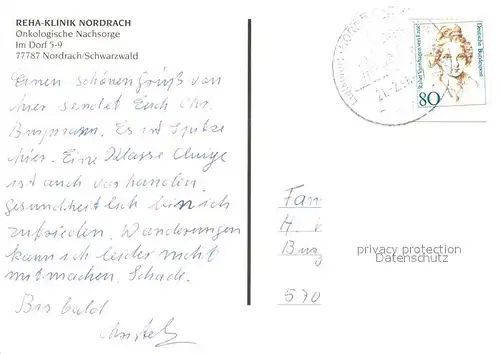 REHA-KLINIK NORDRACH
Onkologische Nachsorge
Im Dorf 5-9
77787 Nordrach/Schwarzwald
Einen schönen Gruß von
hier sendet Euch Chr.
Burgmann. Es ist Spitze
hier. Eine Klasse
ist auch vorhanden.
gesundheitlich bin ich
zufrieden. Wanderungen
kann ich leider nicht
mitmachen. Schade.
Bis bald
Deutsche Bundespost
80
Fam
H.
Bur
570
privacy protection
Datenschutz